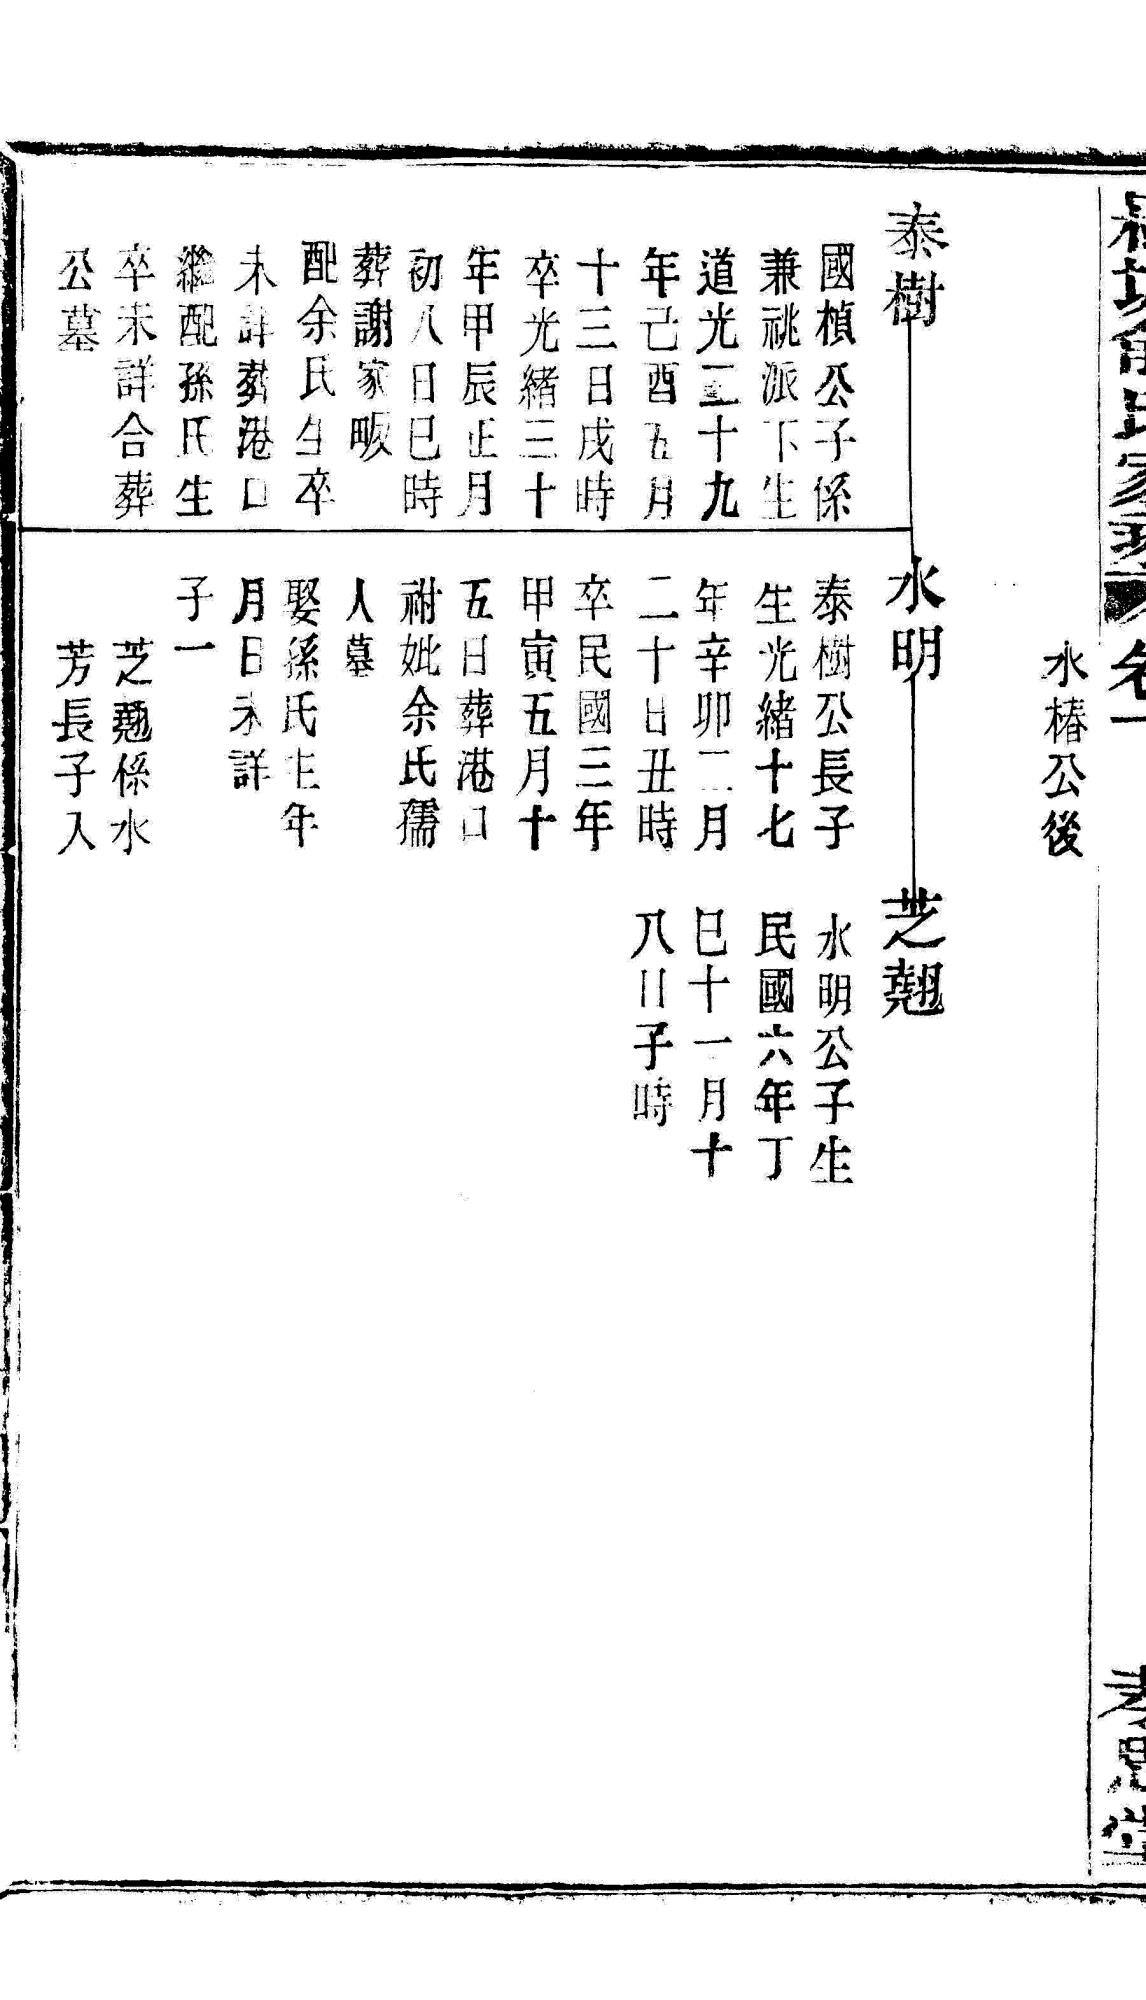 水椿公後
泰樹
國楨公子係
兼祧派下生
道光二十九
年己酉五月
十三日戌時
卒光緒三十
年甲辰正月
初八日巳時
葬謝家畈
配余氏生卒
未詳葬港口
繼配孫氏生
卒未詳合葬
公墓
水明
泰樹公長子
生光緒十七
年辛卯二月
二十日丑時
卒民國三年
甲寅五月十
五日葬港口
祔妣余氏孺
人墓
娶孫氏生年
月日未詳
子一
芝翹係水
芳長子入
芝翹
水明公子生
民國六年丁
巳十一月十
八日子時